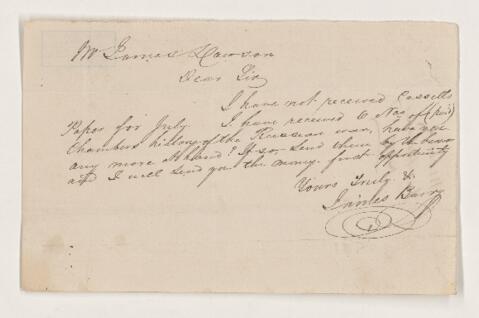 Mr James Dawson
Dear Sir
I have not received Cassells
Paper for July I have received 6 Nos of (paid)
Chambers history of the Russian war, have you
any more at hand? If so, send them by the bearer
and I will send you the money first opportunity
Yours truly &
James Barry